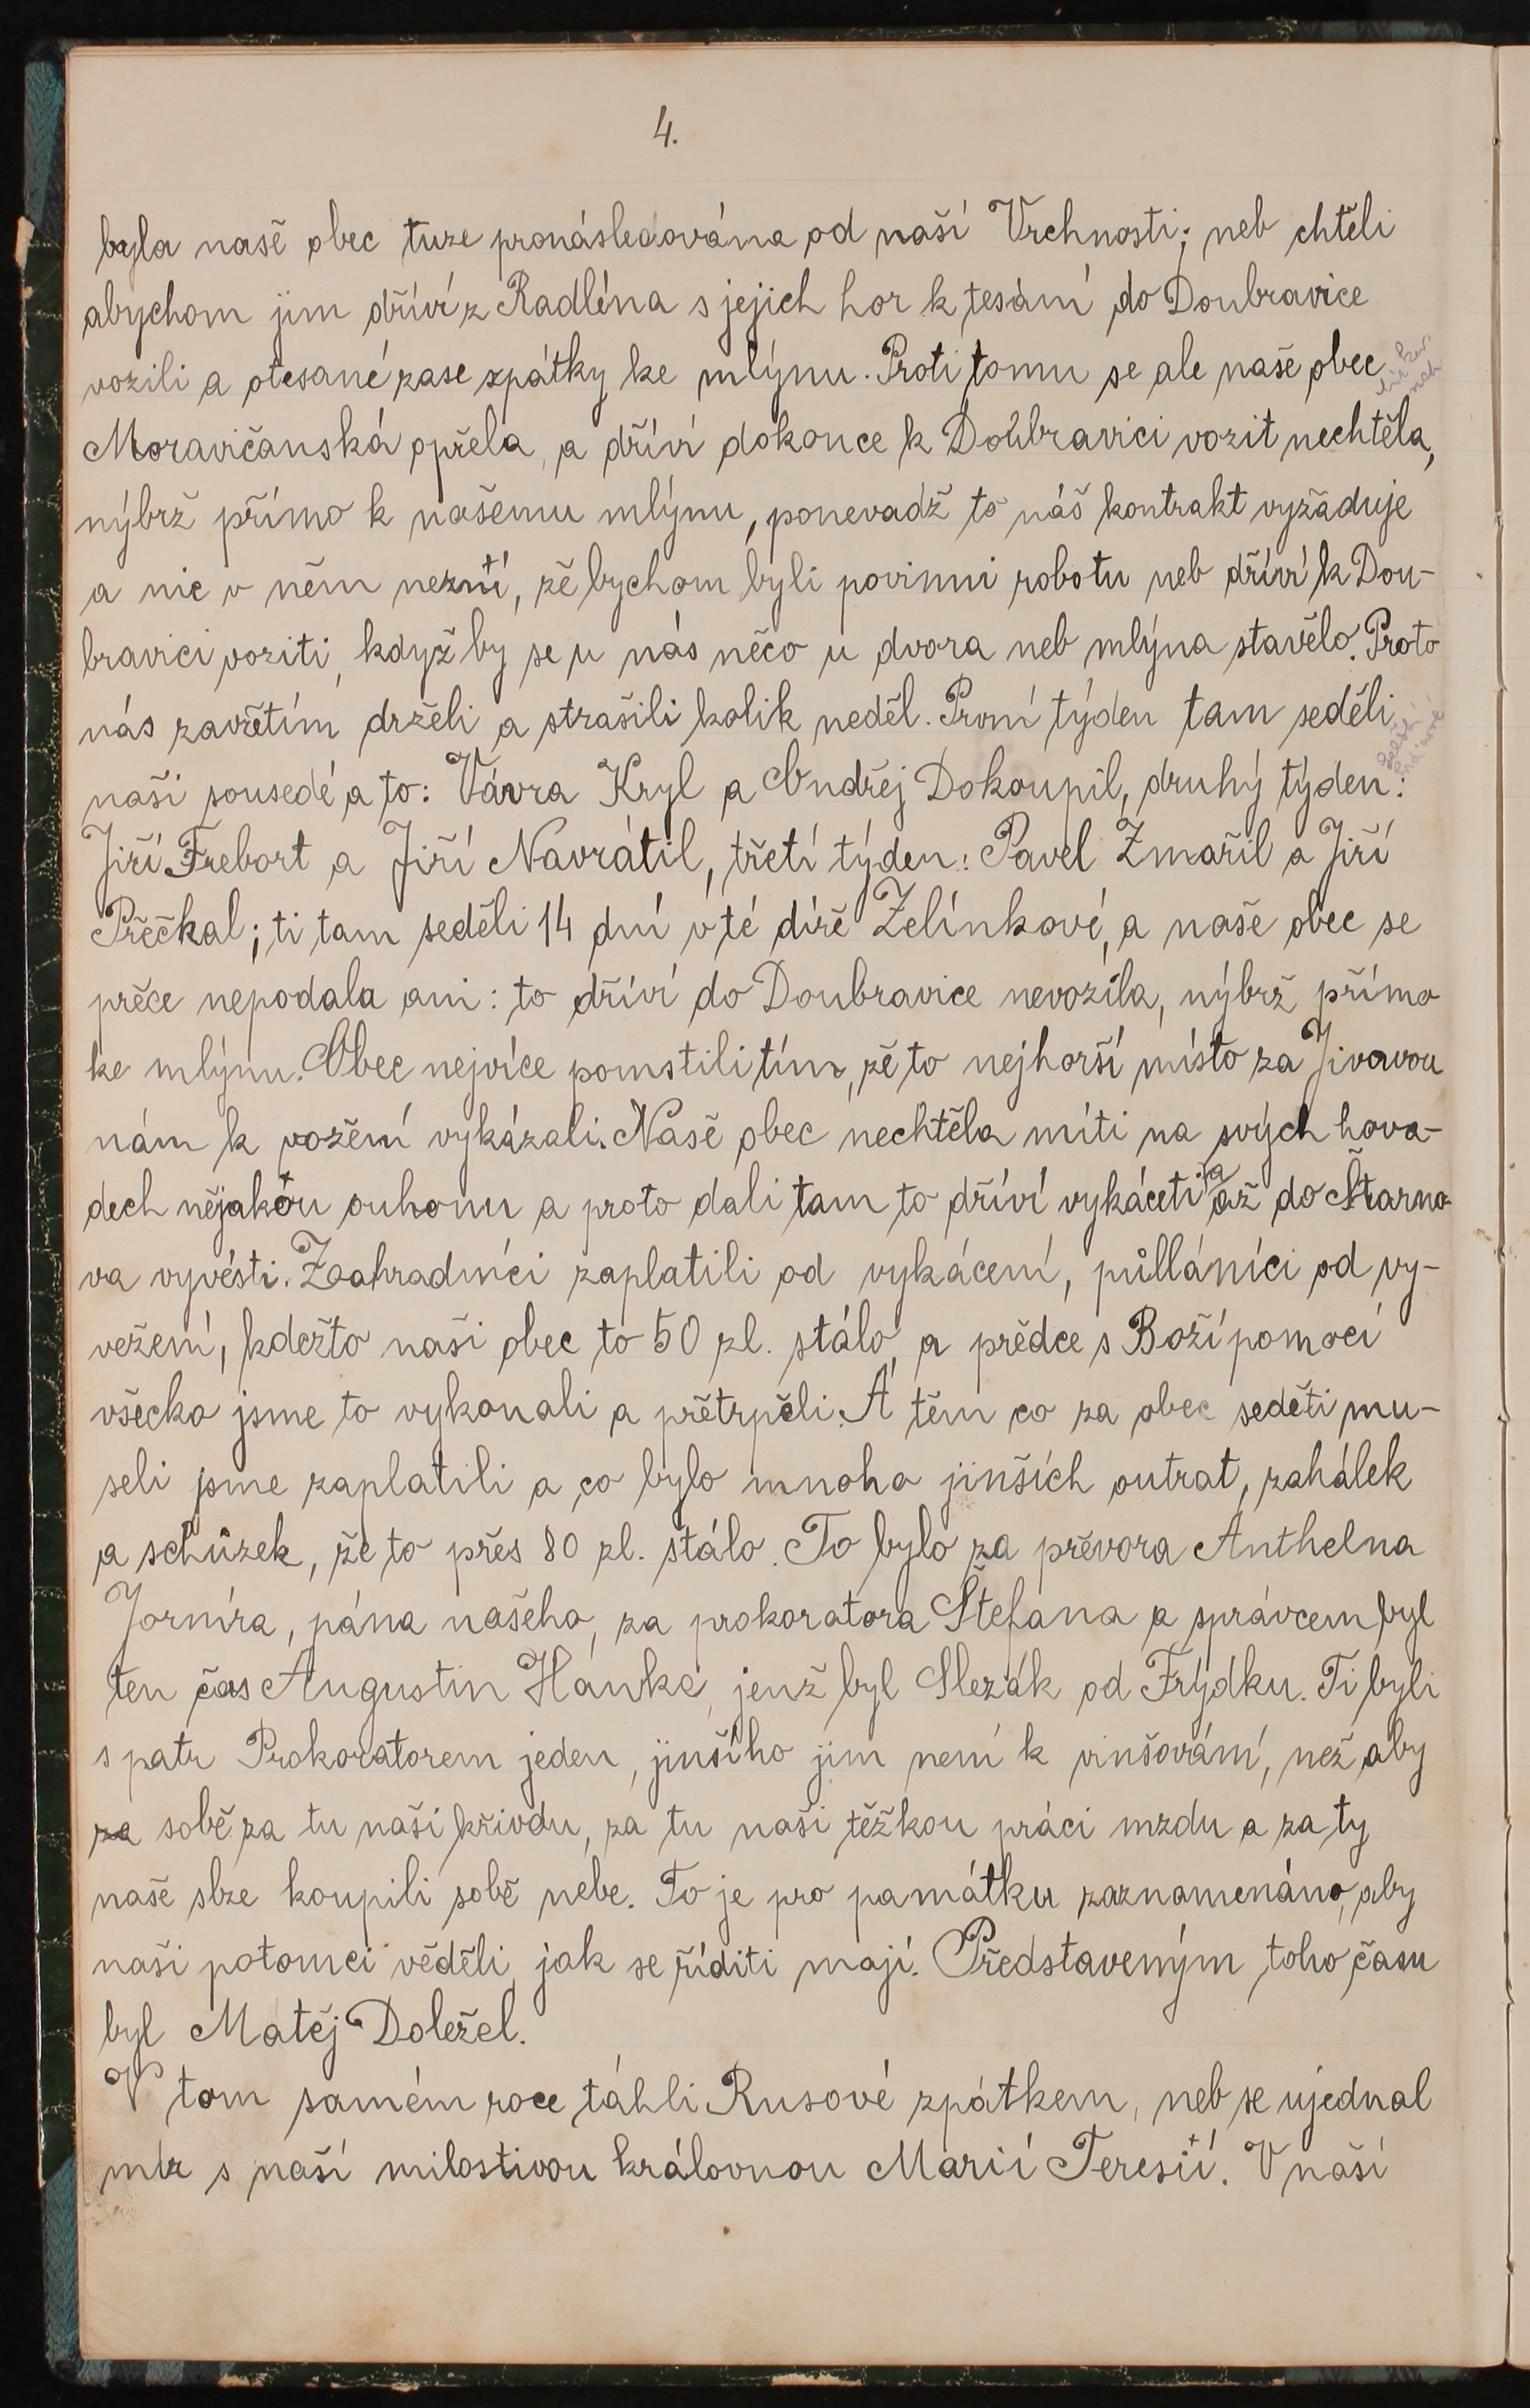 4.
byla naše obec tuze pronásledována od naší Vrchnosti; neb chtěli
abychom jim dříví z Radléna s jejich hor k tesání do Doubravice
vozili a otesané zase zpátky ke mlýnu. Proti tomu se ale naše obec
Moravičanská opřela, a dříví dokonce k Doubravici vozit nechtěla,
nýbrž přímo k našemu mlýnu, ponevadž to náš kontrakt vyžaduje
a nic v něm nezní, že bychom byli povinni robotu neb dříví k Dou-
bravici voziti, když by se u nás něco u dvora neb mlýna stavělo. Proto
nás zavřetím drželi a strašili kolik neděl. První týden tam seděli
naši sousedé a to: Vávra Kryl a Ondřej Dokoupil, druhý týden:
Jiří Frebort a Jiří Navrátil, třetí týden: Pavel Zmařil a Jiří
Přěčkal; ti tam seděli 14 dní v té díře Zelínkové, a naše obec se
přěce nepodala ani: to dříví do Doubravice nevozila, nýbrž přímo
ke mlýnu. Obec nejvíce pomstili tím, že to nejhorší místo za Jivovou
nám k vožení vykázali. Naše obec nechtěla míti na svých hova-
dech nějakou ouhonu a proto dali tam to dříví vykáceti a až do Štarno-
va vyvésti. Zaahradníci zaplatili od vykácení, půllánící od vy-
vežení, kdežto naši obec to 50 zl. stálo, a předce s Boží pomocí
všecko jsme to vykonali a přetrpěli. A těm co za obec seděti mu-
seli jsme zaplatili a co bylo mnoho jinších outrat, zahálek
a schůzek, že to přes 80 zl. stálo. To bylo za převora Anthelna
Jorníra, pána našeho, za prokoratora Štefana a správcem byl
ten čas Augustin Hanke, jenž byl Slezák od Frýdku. Ti byli
s patr Prokoratorem jeden, jinšího jim není k vinšování, než aby
za sobě za tu naši křivdu, za tu naši těžkou práci mzdu a za ty
naše slze koupili sobě nebe. To je pro památku zaznamenáno, aby
naši potomci věděli, jak se říditi mají. Představeným toho času
byl Matěj Doležel.
V tom samém roce táhli Rusové zpátkem, neb se ujednal
mír s naší milostivou královnou Marií Teresií. V naší